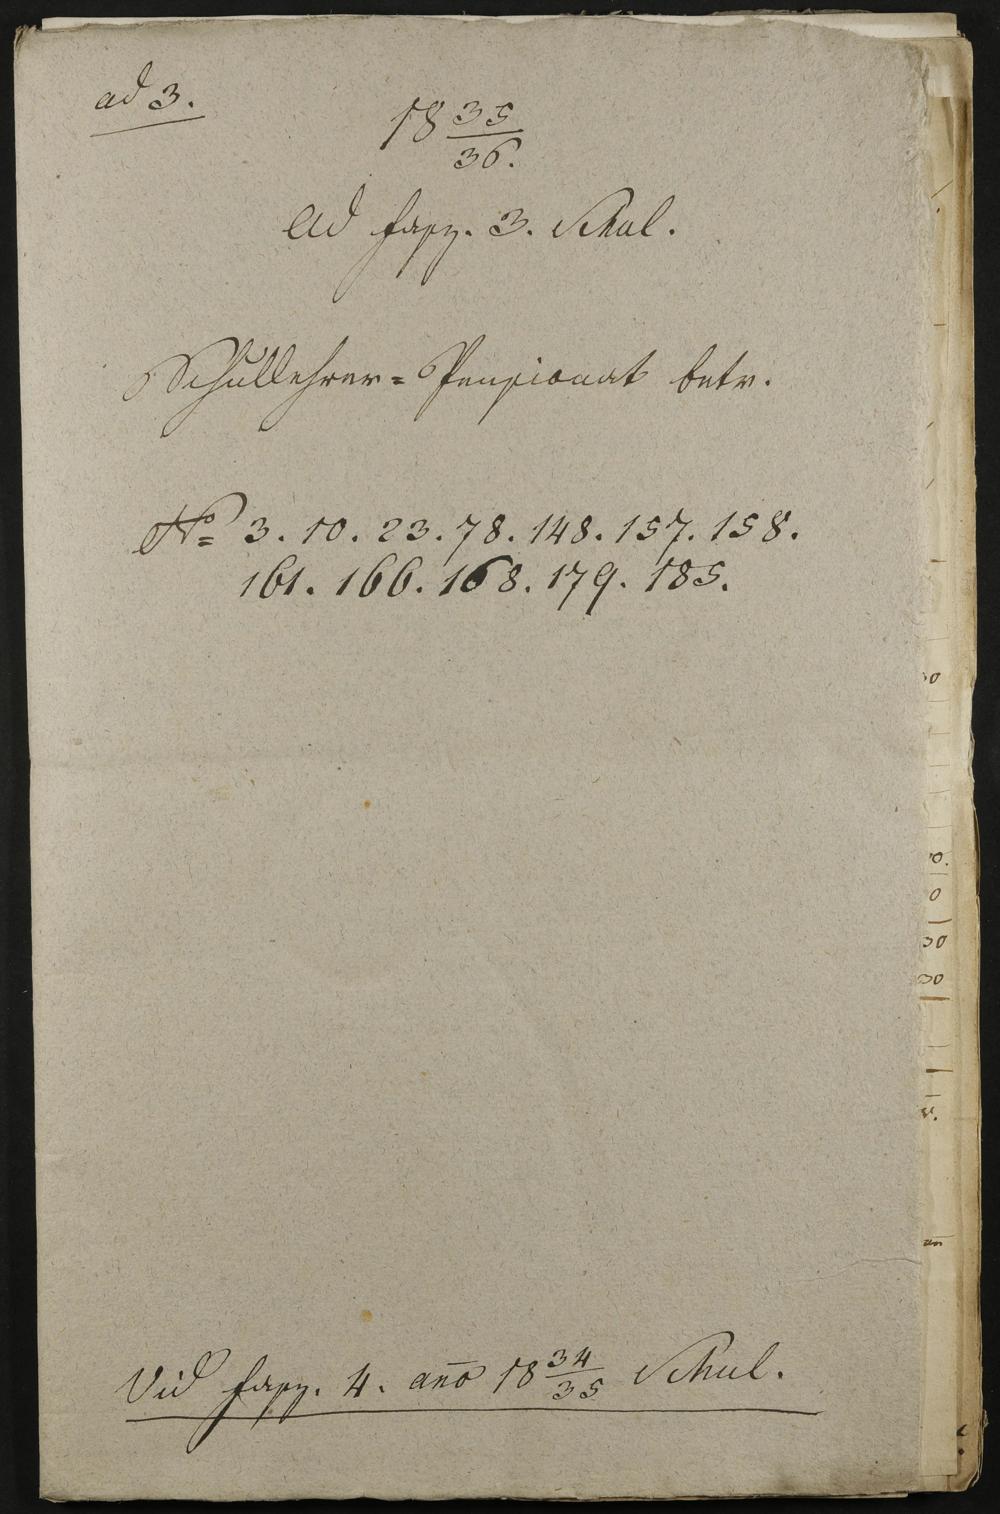 ad 3.
18 35/36.
Ad fasz. 3. Schul.
Schullehrer= Pensionat betr.
No 3. 10. 23. 78. 148. 157. 158.
161. 166. 168. 179. 185.
Vid fasz. 4. ano 18 34/35 Schul.